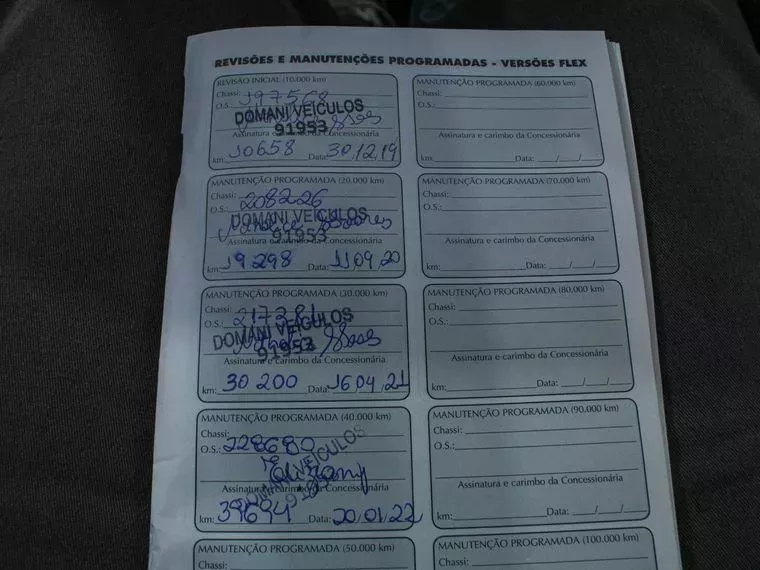 REVISÕES E MANUTENÇÕES PROGRAMADAS - VERSÕES FLEX
REVISÃO INICIAL (10.000 km)
Chassi:
O.S.: 197568
DOMANI VEÍCULOS
91953
Assinatura e carimbo da Concessionária
km: 10658 Data: 30/12/19
MANUTENÇÃO PROGRAMADA (20.000 km)
Chassi:
O.S.: 208226
DOMANI VEÍCULOS
91953
Assinatura e carimbo da Concessionária
km: 19.298 Data: 11/09/20
MANUTENÇÃO PROGRAMADA (30.000 km)
Chassi:
O.S.: 217281
DOMANI VEÍCULOS
91953
Assinatura e carimbo da Concessionária
km: 30 200 Data: 16/04/21
MANUTENÇÃO PROGRAMADA (40.000 km)
Chassi:
O.S.: 228680
DOMANI VEÍCULOS
Assinatura e carimbo da Concessionária
km: 39694 Data: 20/01/22
MANUTENÇÃO PROGRAMADA (50.000 km)
Chassi:
MANUTENÇÃO PROGRAMADA (60.000 km)
Chassi:
O.S.:
Assinatura e carimbo da Concessionária
km: Data: __/__/__
MANUTENÇÃO PROGRAMADA (70.000 km)
Chassi:
O.S.:
Assinatura e carimbo da Concessionária
km: Data: __/__/__
MANUTENÇÃO PROGRAMADA (80.000 km)
Chassi:
O.S.:
Assinatura e carimbo da Concessionária
km: Data: __/__/__
MANUTENÇÃO PROGRAMADA (90.000 km)
Chassi:
O.S.:
Assinatura e carimbo da Concessionária
km: Data: __/__/__
MANUTENÇÃO PROGRAMADA (100.000 km)
Chassi: